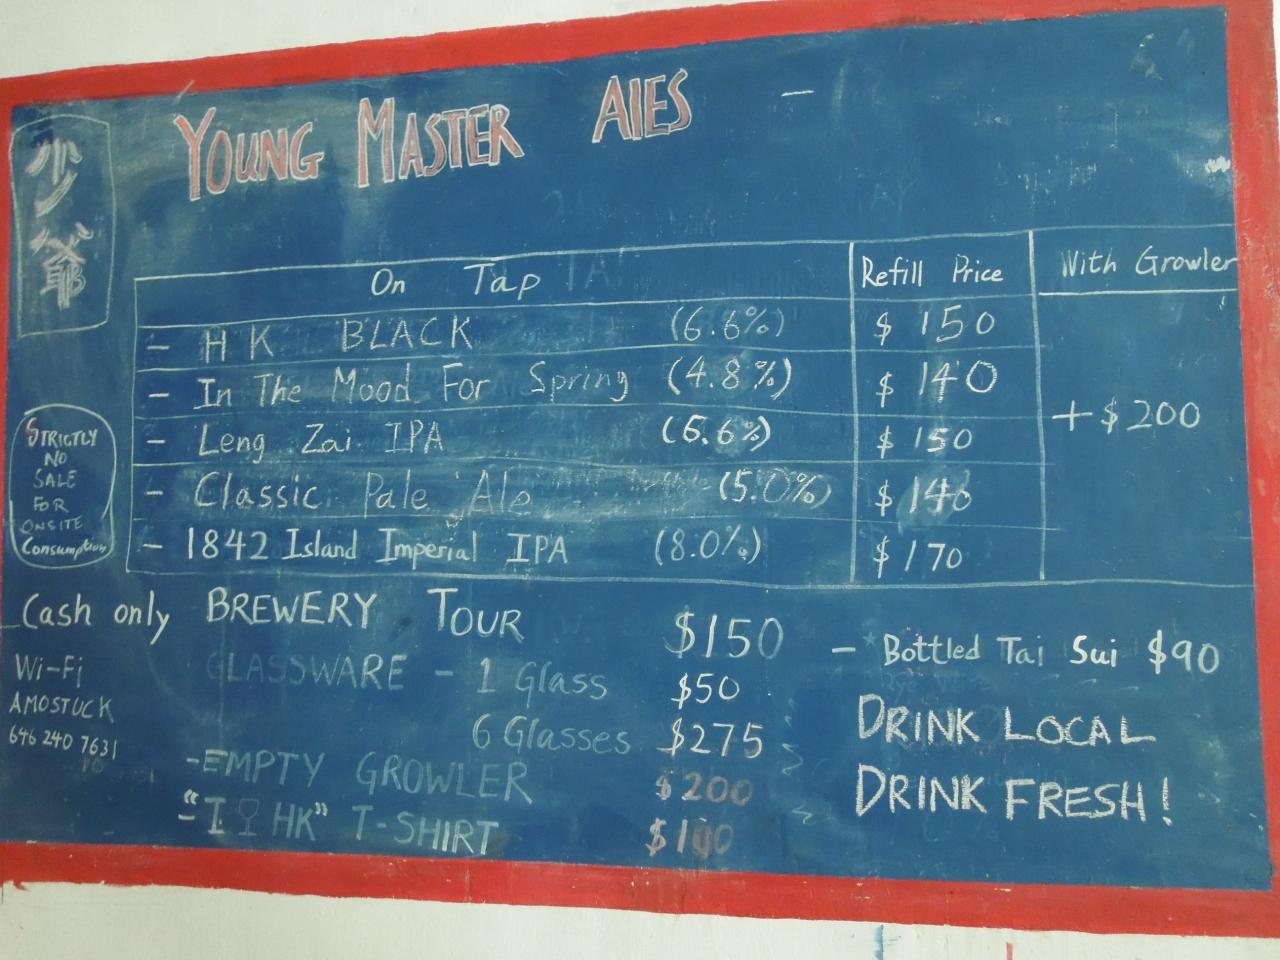 YOUNG MASTER AlES -
少爺
On Tap Refill Price With Growler
- HK BLACK (6.6%) $150
- In The Mood For Spring (4.8%) $140
- Leng Zai IPA (6.6%) $150
- Classic Pale Ale (5.0%) $140
- 1842 Island Imperial IPA (8.0%) $170
+ $200
STRICTLY
NO
SALE
FOR
ONSITE
Consumption
Cash only
Wi-Fi
AMOSTUCK
646 240 7631
BREWERY TOUR $150
GLASSWARE - 1 Glass $50
6 Glasses $275
- EMPTY GROWLER $200
- "I HK" T-SHIRT $100
- Bottled Tai Sui $90
DRINK LOCAL
DRINK FRESH!